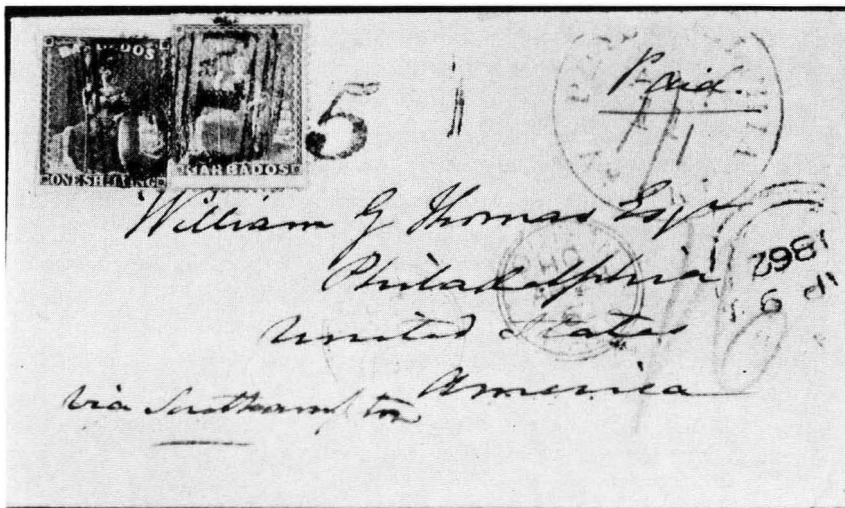 BARBADOS
ONE SHILLING
BARBADOS
5
Paid.
William G Thomas Esqr
Philadelphia
United States
America
via Southampton
1862